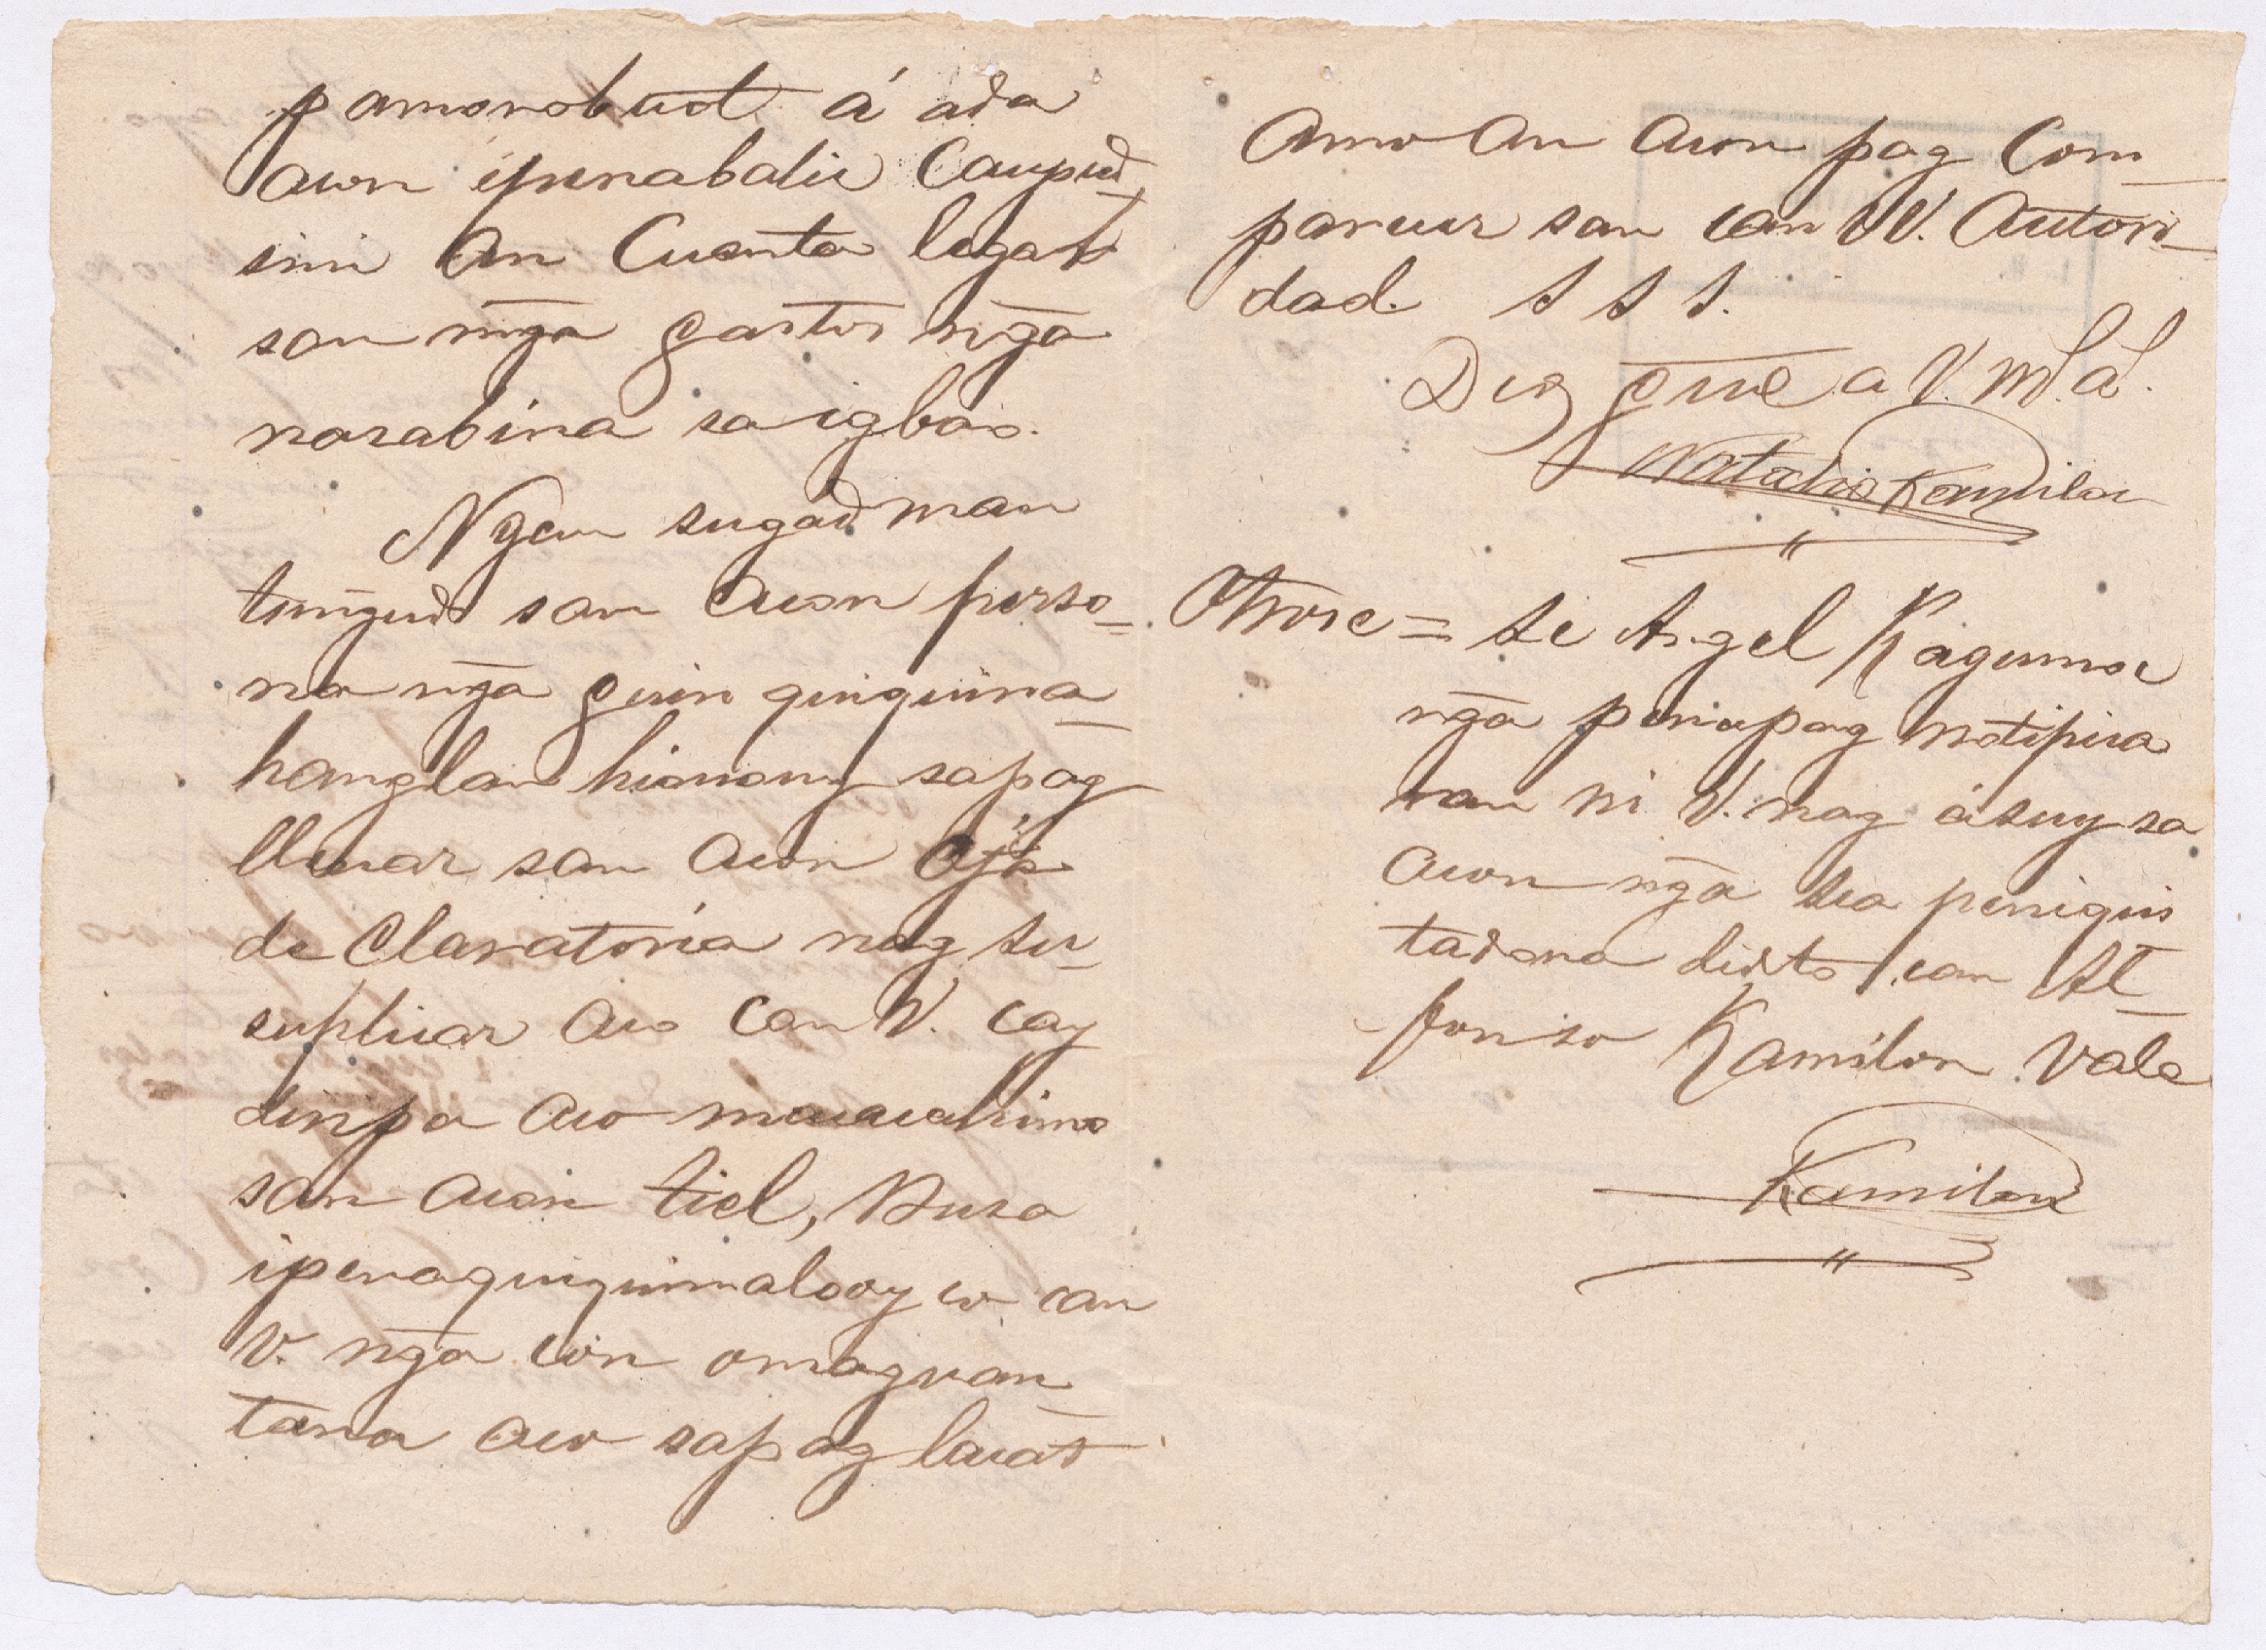 pamorobud á ada
acon ipinabalic Caupud
sini An Cuenta legal
san mga gastos nga
nasabina sa igbao.
Ngan sugad man
tungud san acon perso=
na nga guin quiquina_
hanglan hianang sapag
llenar san acon Oja
de Claratoria nag su_
suplicar Aco Can V. cay
dinpa aco macacahimo
san acon tiel, Busa
ipinaquiquimalooy co can
V. nga con omaguan_
tana aco sapag lacat
Amo An acon pag Com_
parecer san can VV. Autori_
dad. S S S.
Dios gue a V. ms. as.
Natalio Kamilon
Otrose = Se Angel Kagumoc
nga pinapag notipica
ran ni V. nag ásuy sa
acon nga sea piniquis
tadana didto can Al_
fonso Kamilon Vale
Kamilon